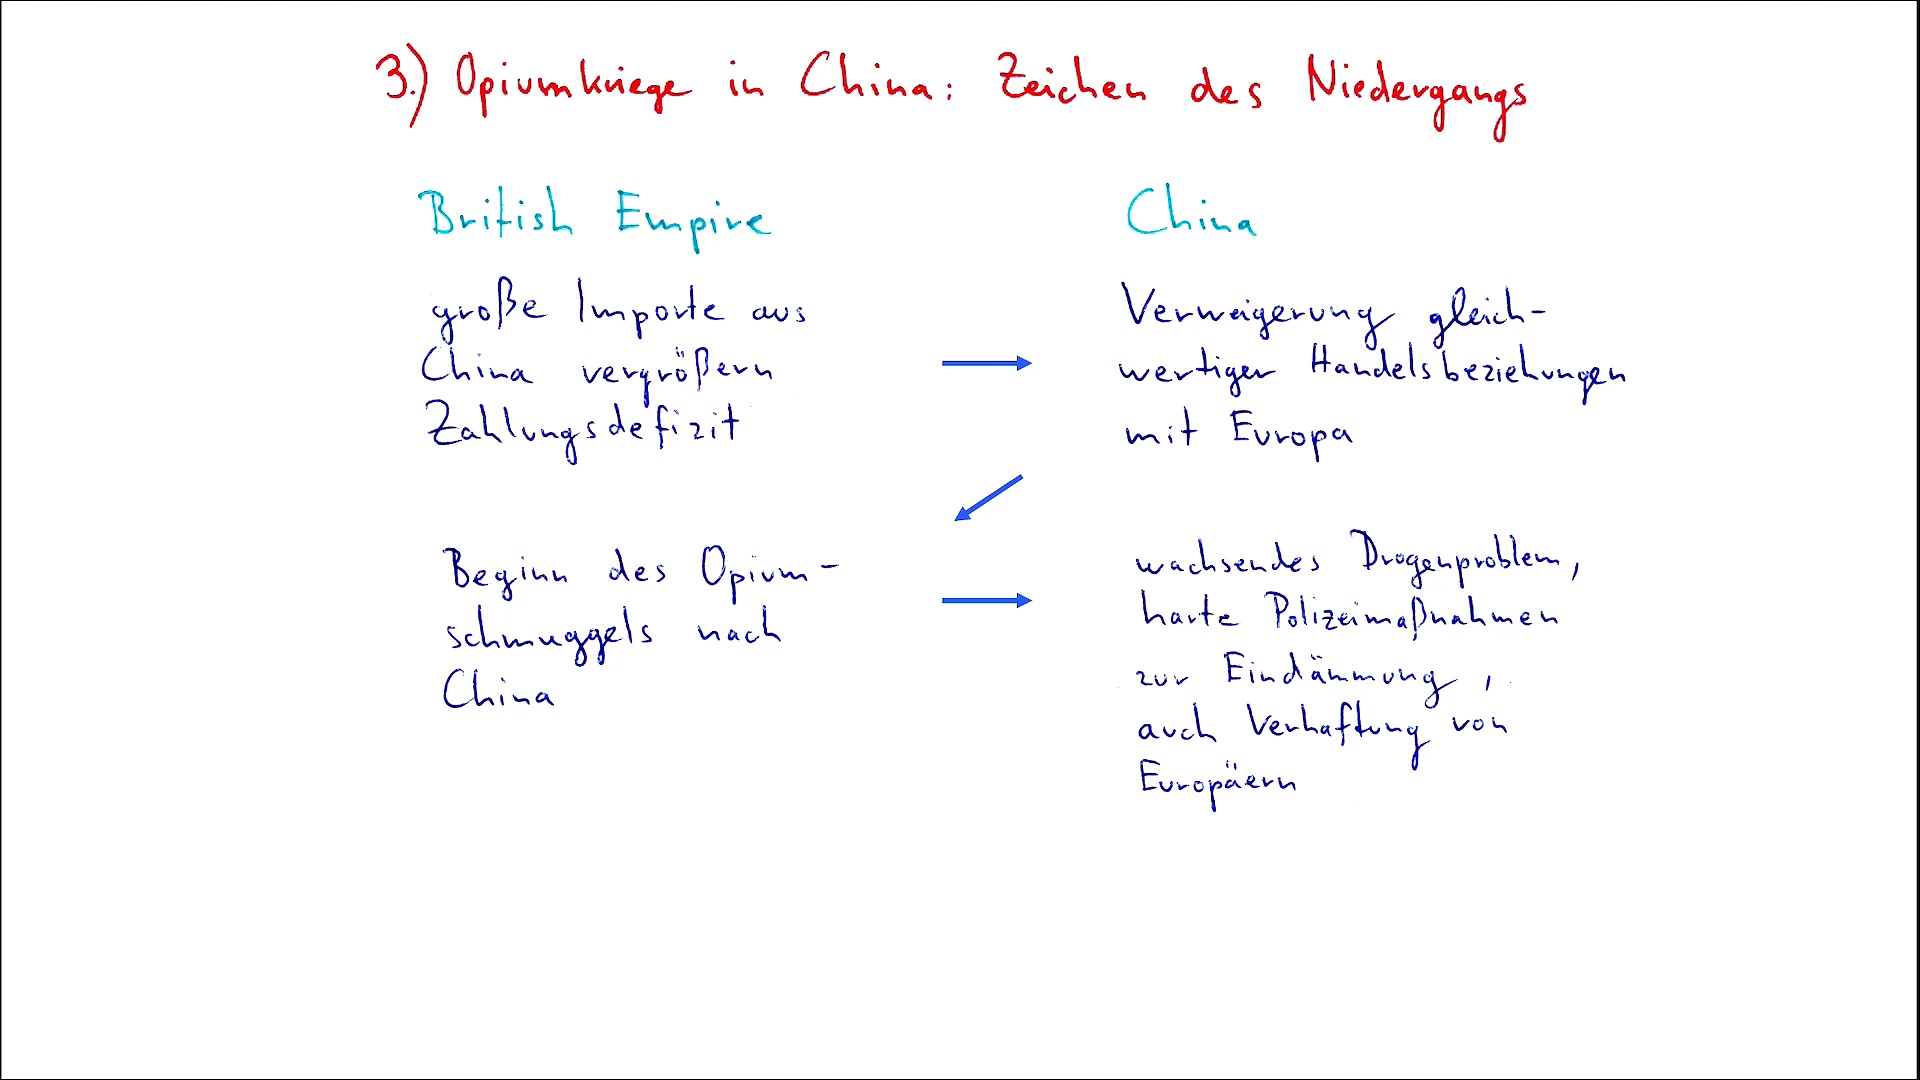 3.) Opiumkriege in China: Zeichen des Niedergangs
British Empire
China
große Importe aus
China vergrößern
Zahlungsdefizit
Verweigerung gleich-
wertiger Handelsbeziehungen
mit Europa
Beginn des Opium-
schmuggels nach
China
wachsendes Drogenproblem,
harte Polizeimaßnahmen
zur Eindämmung,
auch Verhaftung von
Europäern